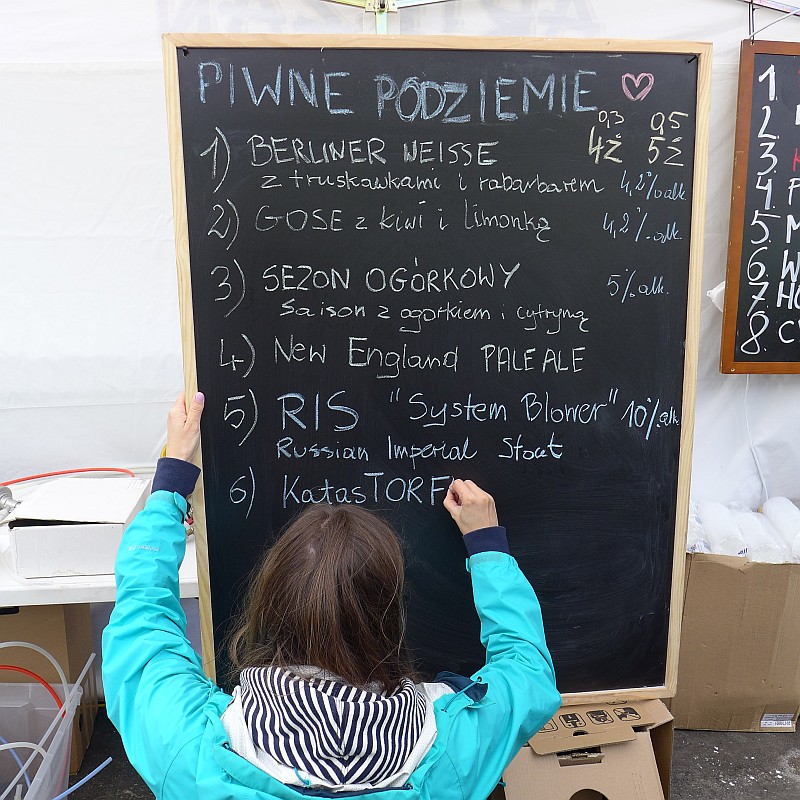 PIWNE PODZIEMIE
0,3 0,5
1) BERLINER WEISSE 4ż 5ż
z truskawkami i rabarbarem 4,2% alk.
2) GOSE z kiwi i limonką 4,2% alk.
3) SEZON OGÓRKOWY 5% alk.
Saison z ogórkiem i cytryną
4) New England PALE ALE
5) RIS "System Blower" 10% alk.
Russian Imperial Stout
6) KatasTORF
1
2.
3.
4. P
5. M
6. W
7. HO
8. C